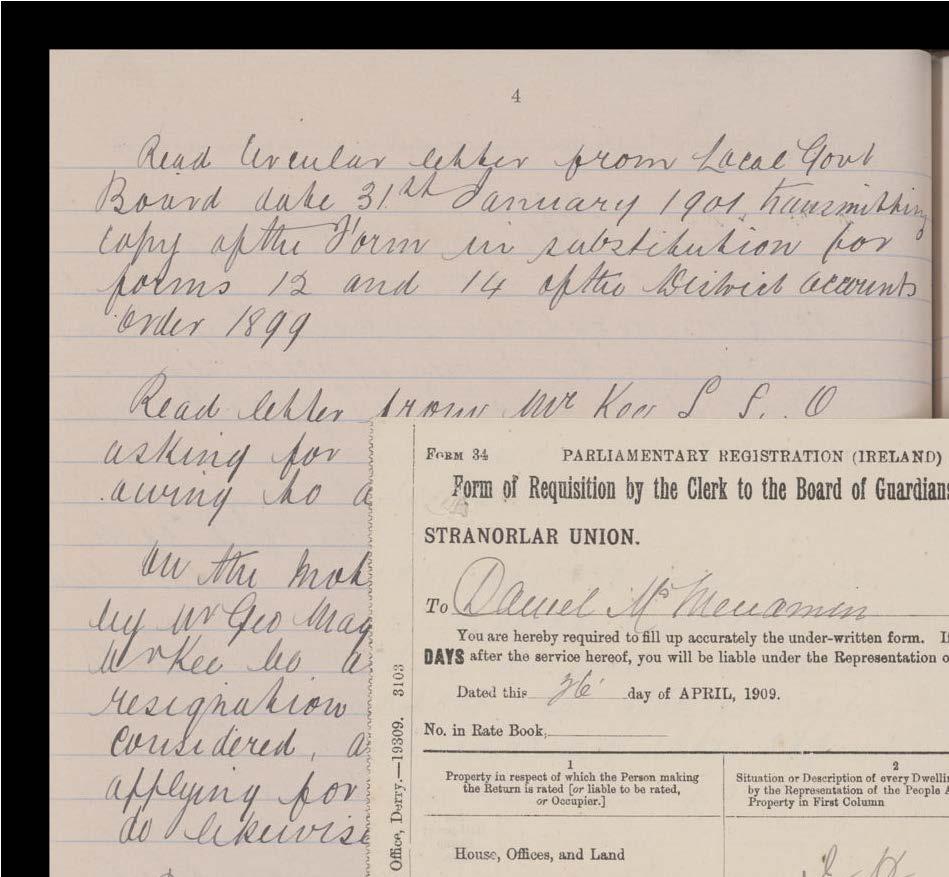 4
Read Circular letter from Local Govt
Board date 31st January 1901 transmitting
copy of the Form in substitution for
forms 12 and 14 of the District accounts
order 1899
Read letter from Mr Kee S. S. O
asking for
owing to a
On the mot
by Mr Geo May
Mr Kee be a
resignation
considered, a
applying for
do likewise
FORM 34 PARLIAMENTARY REGISTRATION (IRELAND)
Form of Requisition by the Clerk to the Board of Guardians
STRANORLAR UNION.
To Daniel McMenamin
You are hereby required to fill up accurately the under-written form. I
DAYS after the service hereof, you will be liable under the Representation o
Dated this 26 day of APRIL, 1909.
No. in Rate Book,
1
Property in respect of which the Person making
the Return is rated [or liable to be rated,
or Occupier.]
2
Situation or Description of every Dwelli
by the Representation of the People A
Property in First Column
House, Offices, and Land
Office, Derry.—19309. 3103